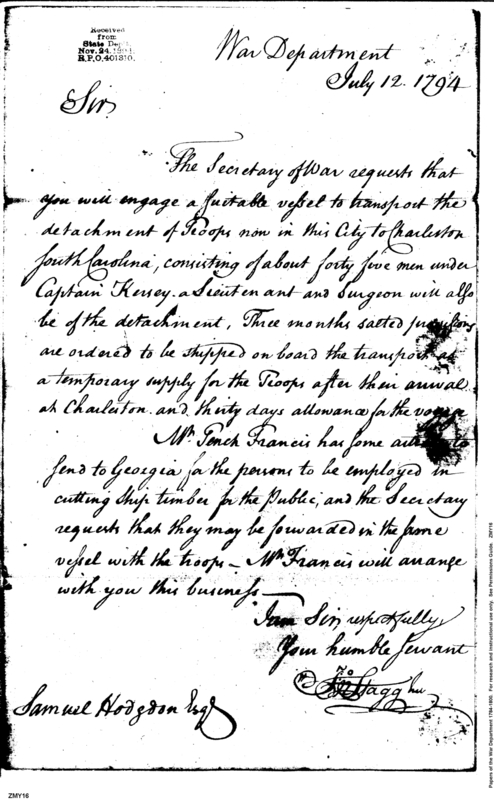 Received
from
State Dept.
Nov. 24. 1894.
R.P.O. 401310.
War Department
July 12. 1794
Sir,
The Secretary of War requests that
you will engage a suitable vessel to transport the
detachment of Troops now in this City to Charleston
South Carolina, consisting of about forty five men under
Captain Kersey. a Lieutenant and Surgeon will also
be of the detachment, Three months salted provisions
are ordered to be shipped on board the transport as
a temporary supply for the Troops after their arrival
at Charleston. and thirty days allowance for the voyage
Mr. Tench Francis has some to
send to Georgia for the persons to be employed in
cutting ship timber for the Public, and the Secretary
requests that they may be forwarded in the same
vessel with the troops — Mr. Francis will arrange
with you this business —
I am Sir, respectfully,
Your humble Servant
Jno Stagg Jur
Samuel Hodgdon Esqr
ZMY16
Papers of the War Department 1784-1800. For research and instructional use only. See Permissions Guide. ZMY16